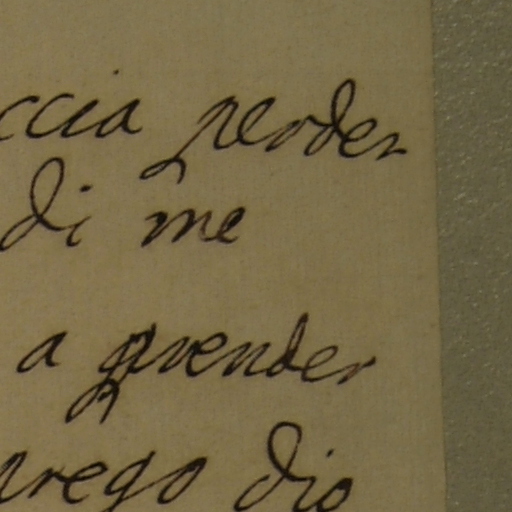 ccia perder
di me
a prender
prego dio